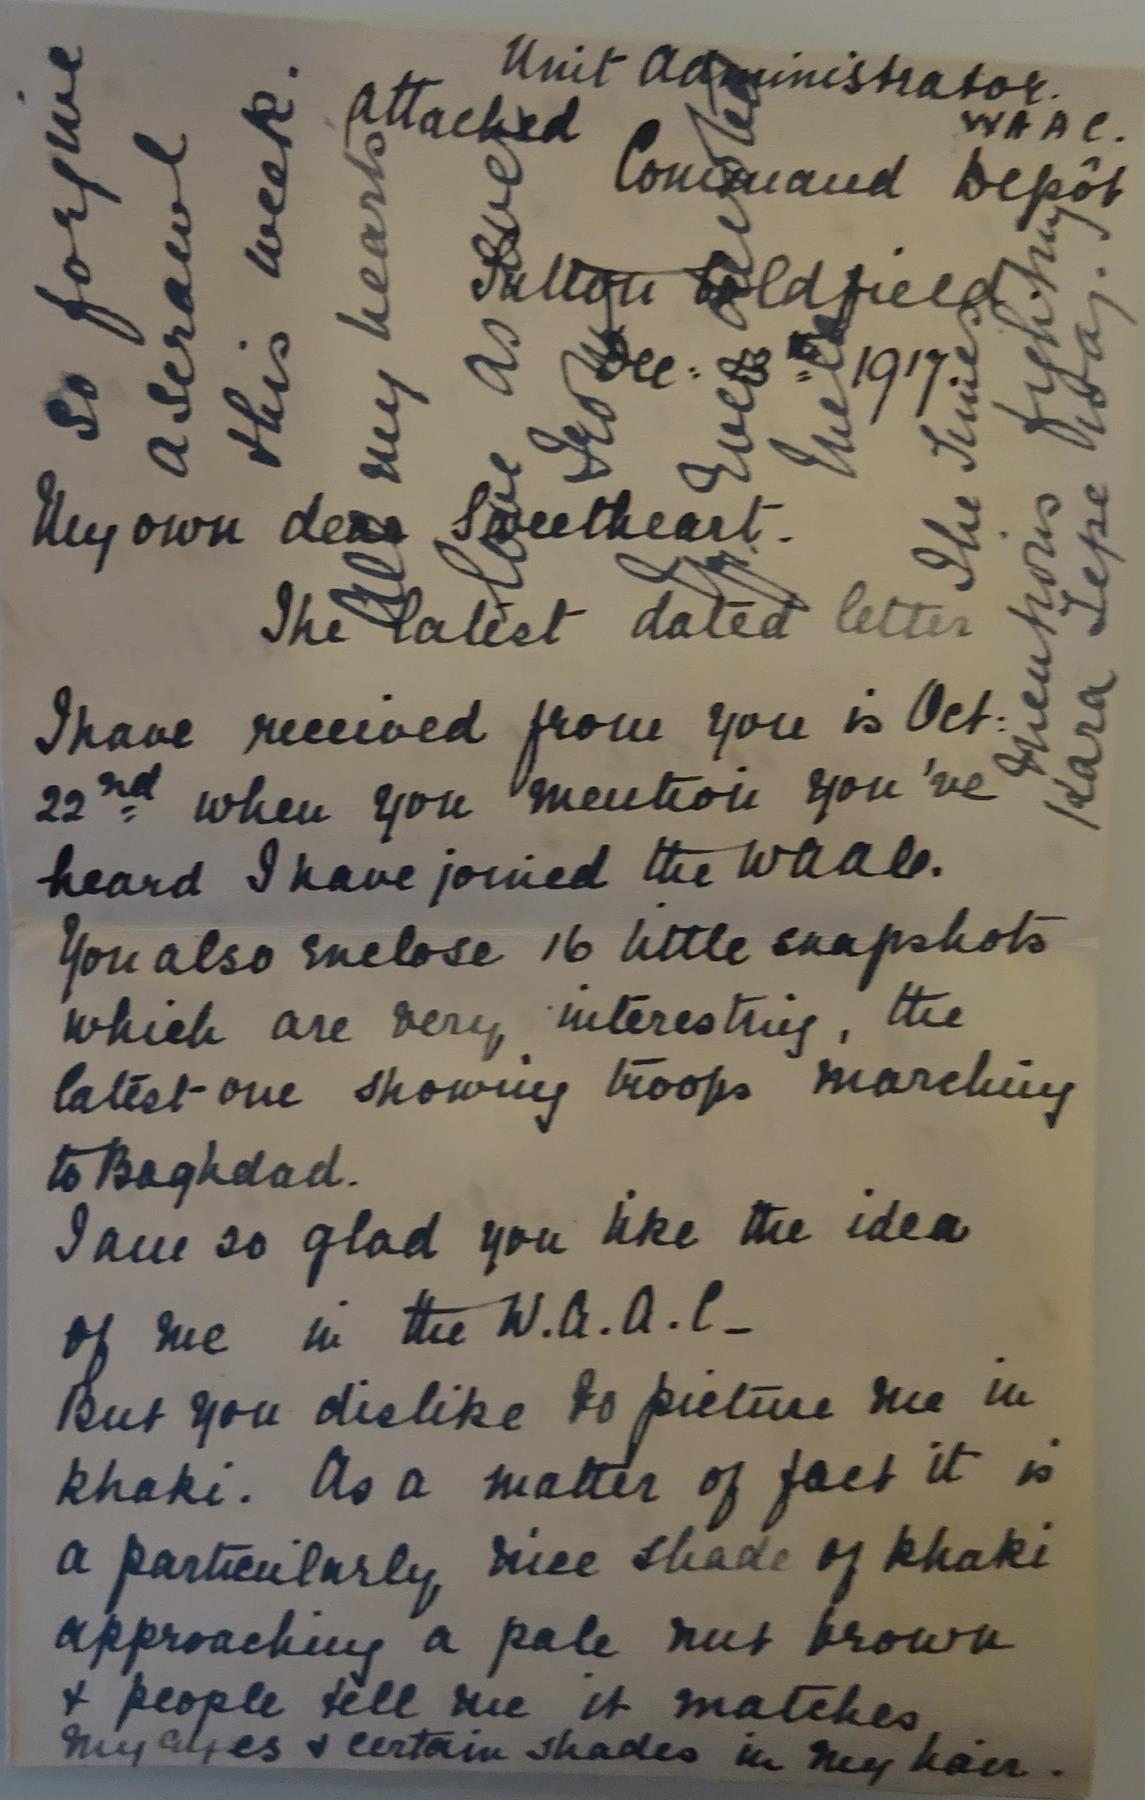 Unit Administrator.
W A A C.
Attached
Command Depôt
Sutton Coldfield
Dec: 13th 1917.
My own dear Sweetheart.
The latest dated letter
I have received from you is Oct:
22nd when you mention you've
heard I have joined the WAAC.
You also enclose 16 little snapshots
which are very interesting, the
latest one showing troops marching
to Baghdad.
I am so glad you like the idea
of me in the W.A.A.C_
But you dislike to picture me in
khaki. As a matter of fact it is
a particularly nice shade of khaki
approaching a pale nut brown
& people tell me it matches
my eyes & certain shades in my hair.
So forgive
a scrawl
this week.
All my hearts
love as ever
from
Your
The Times
mentions fighting
Kara Tepe way.